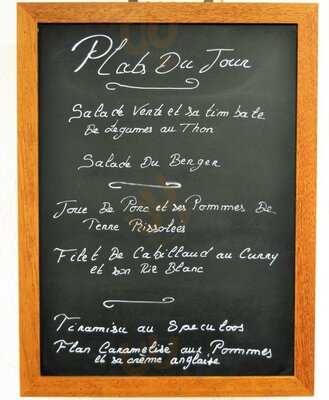 Plats Du Jour
Salade Verte et sa timbale
De Legumes au Thon
Salade Du Berger
Joue De Porc et ses Pommes De
Terre Rissolées
Filet De Cabillaud au Curry
et son Riz Blanc
Tiramisu au Speculoos
Flan Caramelisé aux Pommes
et sa crème anglaise